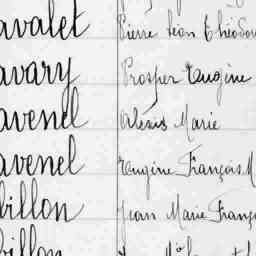 avalet Pierre Léon Théodor
avary Prosper Eugène
avenel Alexis Marie
avenel Eugène François M
billon Jean Marie Franço
billon